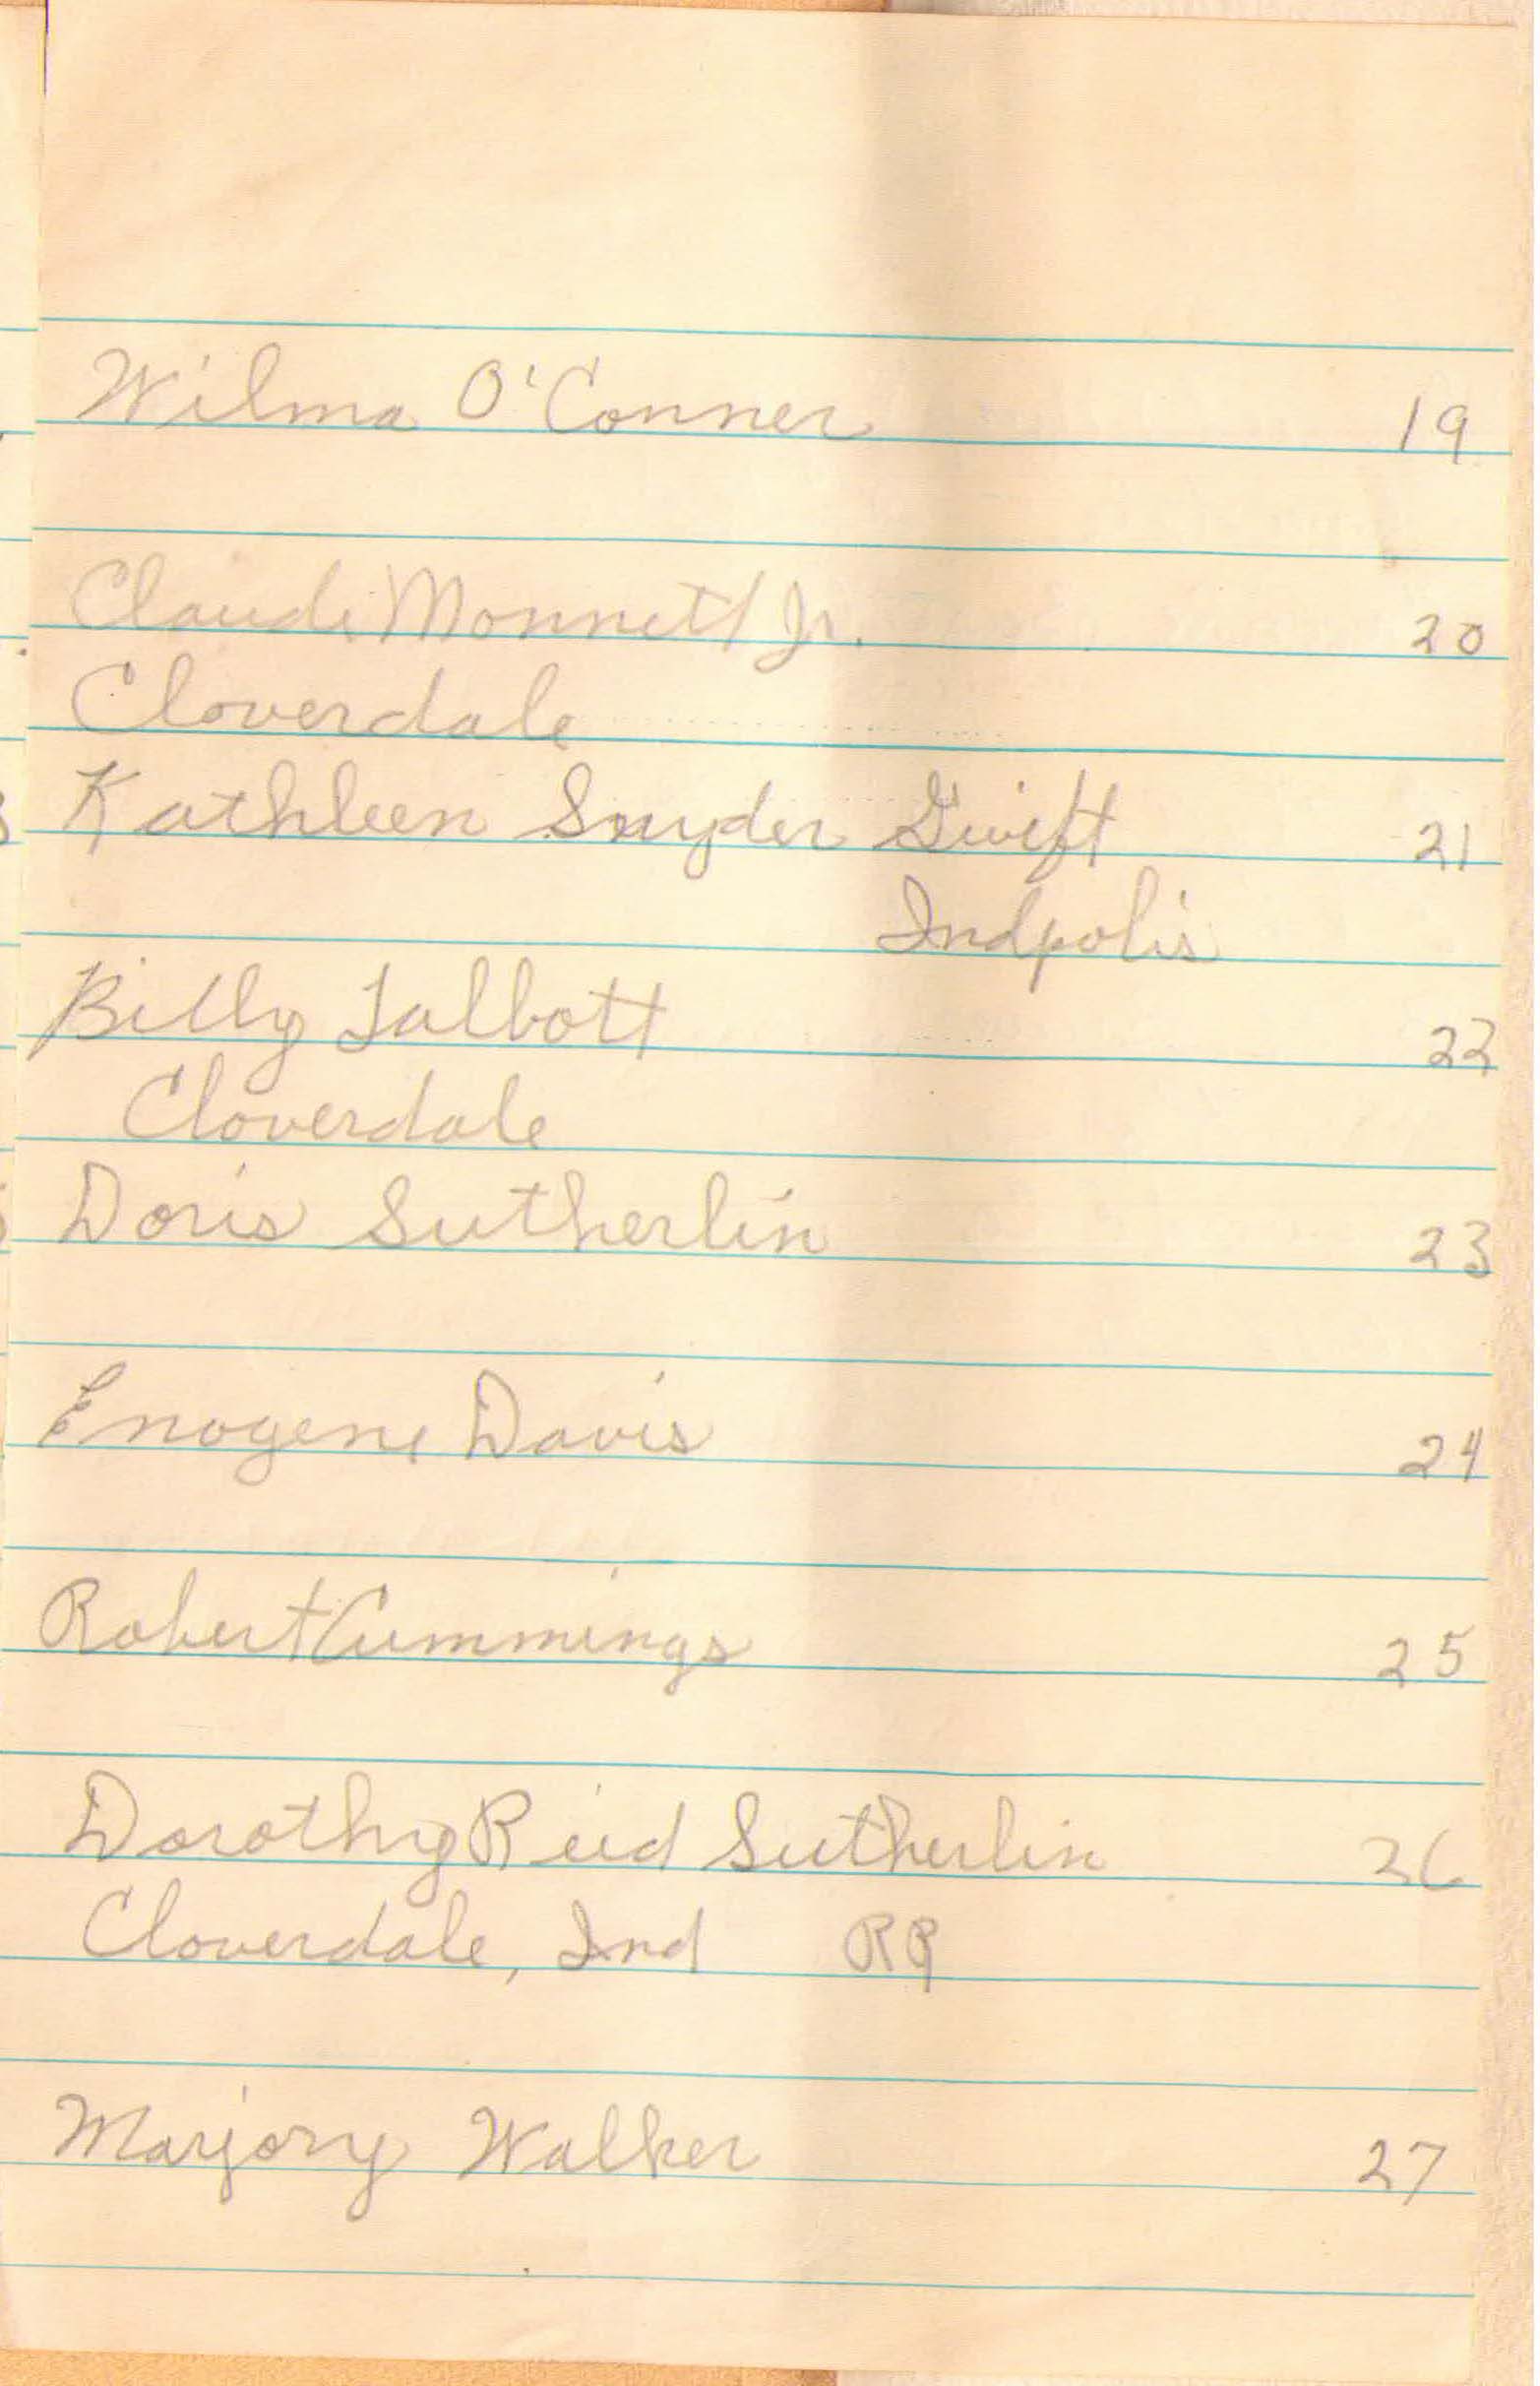 Wilma O'Conner 19
Claude Monnett Jr. 20
Cloverdale
Kathleen Snyder Swift 21
Indpolis
Billy Talbott 22
Cloverdale
Doris Sutherlin 23
Enogene Davis 24
Robert Cummings 25
Dorothy Reid Sutherlin 26
Cloverdale, Ind RR
Marjory Walker 27